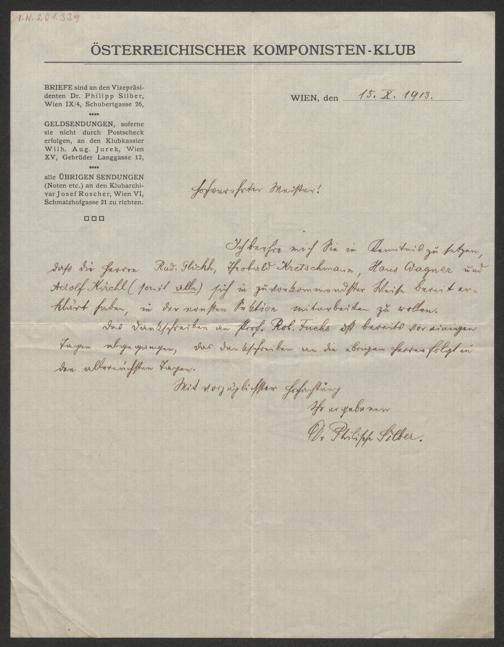 I.N. 201.339
ÖSTERREICHISCHER KOMPONISTEN-KLUB
BRIEFE sind an den Vizepräsi-
denten Dr. Philipp Silber,
Wien IX/4, Schubertgasse 26,
GELDSENDUNGEN, soferne
sie nicht durch Postscheck
erfolgen, an den Klubkassier
Wilh. Aug. Jurek, Wien
XV, Gebrüder Langgasse 12,
alle ÜBRIGEN SENDUNGEN
(Noten etc.) an den Klubarchi-
var Josef Roscher, Wien VI,
Schmalzhofgasse 21 zu richten.
WIEN, den 15. X. 1913.
Hochverehrter Meister!
Ich beehre mich Sie in Kenntnis zu setzen,
daß die Herren Rud. Glickh, Theobald Kretschmann, Hans Wagner und
Adolf Kirchl (somit alle) sich in zuvorkommendster Weise bereit er-
klärt haben, in der ernsten Sektion mitarbeiten zu wollen.
Das Dankschreiben an Prof. Rob. Fuchs ist bereits vor einigen
Tagen abgegangen, das Dankschreiben an die übrigen Herren folgt in
den allernächsten Tagen.
Mit vorzüglichster Hochachtung
Ihr ergebener
Dr Philipp Silber.